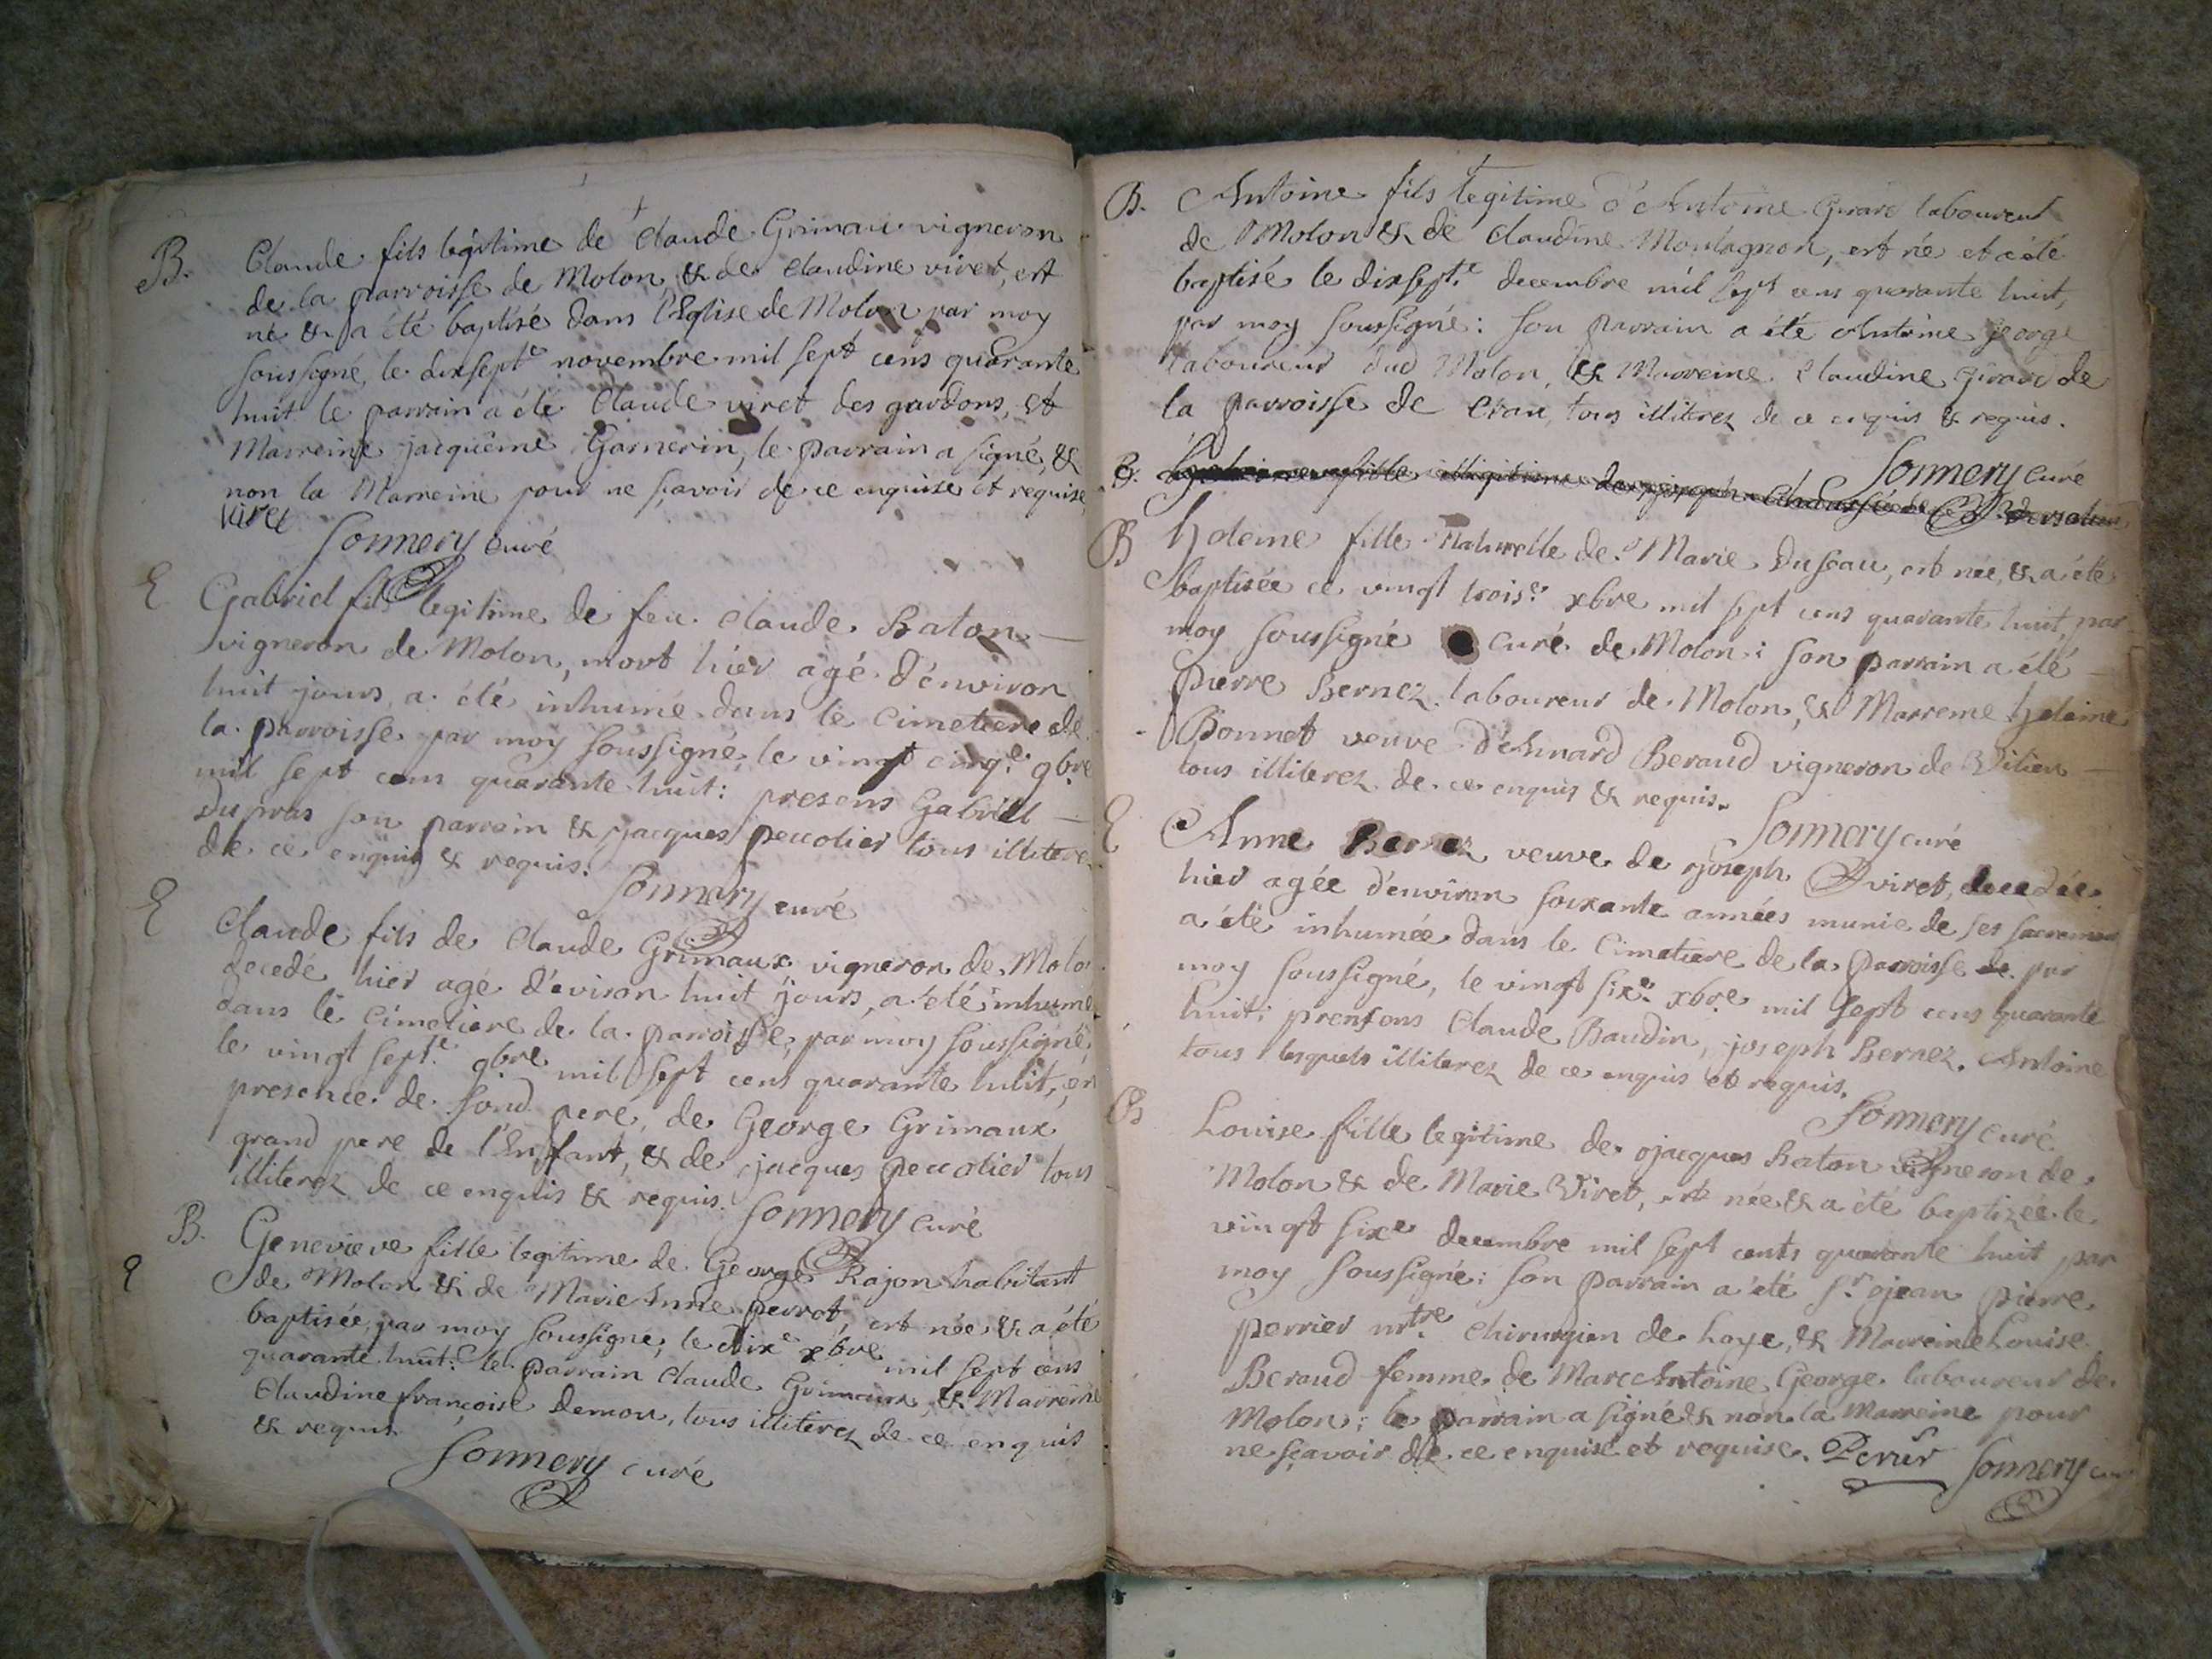 B. Claude fils légitime de Claude Grimaux vigneron
de la parroisse de Molon, & de Claudine viret, est
né & a été baptisé dans l'Eglise de Molon par moy
soussigné, le dixsept.e novembre mil sept cens quarante
huit le parrain a été Claude viret des gardons, et
Marreine jacqueme Garnerin, le parrain a signé, &
non la Marreine pour ne sçavoir de ce enquise et requise
viret
Sonnery curé
E Gabriel fils legitime de feu Claude Raton
vigneron de Molon, mort hier agé d'environ
huit jours, a été inhumé dans le Cimetiere de
la parroisse par moy soussigné, le vingt cinq.e 9bre
mil sept cens quarante huit: presens Gabriel
Dupras son parrain & jacques peccolier tous illiterez
de ce enquis & requis.
Sonnery curé
E Claude fils de Claude Grimaux vigneron de Molon
decedé hier agé d'eviron huit jours, a été inhumé
dans le Cimetiere de la parroisse, par moy soussigné,
le vingt sept.e 9bre mil sept cens quarante huit, en
presence de sond pere, de George Grimaux
grand pere de l'Enfant, & de jacques peccolier tous
illiterez de ce enquis & requis.
Sonnery curé
B. Genevieve fille legitime de George Rajon habitant
E de Molon & de Marie Anne perrot, est née & a été
baptisée, par moy soussigné, le dix.e xbre mil sept cens
quarante huit: le parrain Claude Grimaux, & Marreine
Claudine françoise Demon, tous illiterez de ce enquis
& requis
Sonnery curé
B. Antoine fils legitime d'Antoine Girard laboureur
de Molon & de Claudine Montagnon, est né et a été
baptisé le dixsept.e decembre mil sept cens quarante huit,
par moy soussigné: son parrain a été Antoine george
laboureur dud Molon, & Marreine Claudine Girard de
la parroisse de Cran, tous illiterez de ce enquis & requis.
Sonnery curé
B. fille illigitime de joseph
B Heleine fille Naturelle de Marie Duseau, est née, & a été
baptisée ce vingt trois.e xbre mil sept cens quarante huit, par
moy soussigné curé de Molon: son parrain a été
Pierre Bernez laboureur de Molon, & Marreine heleine
Bonnet veuve d'Annard Beraud vigneron de Vilieu
tous illiterez de ce enquis & requis.
Sonnery curé
E Anne Bernez veuve de joseph viret, decedée
hier agée d'environ soixante années munie de ses sacremens
a été inhumée dans le Cimetiere de la parroisse de par
moy soussigné, le vingt six.e xbre mil sept cens quarante
huit; prensens Claude Baudin, joseph Bernez. Antoine
tous lesquels illiterez de ce enquis et requis.
Sonnery curé
B Louise fille legitime de jacques Raton vigneron de
Molon & de Marie Viret, est née & a été baptizée le
vingt six.e decembre mil sept cents quarante huit par
moy soussigné: son parrain a été S.r jean pierre
perrier m.tre Chirurgien de Loye, & Marreine Louise
Beraud femme de Marc Antoine George laboureur de
Molon; le parrain a signé & non la Marreine pour
ne sçavoir de ce enquise et requise. Perrier Sonnery curé